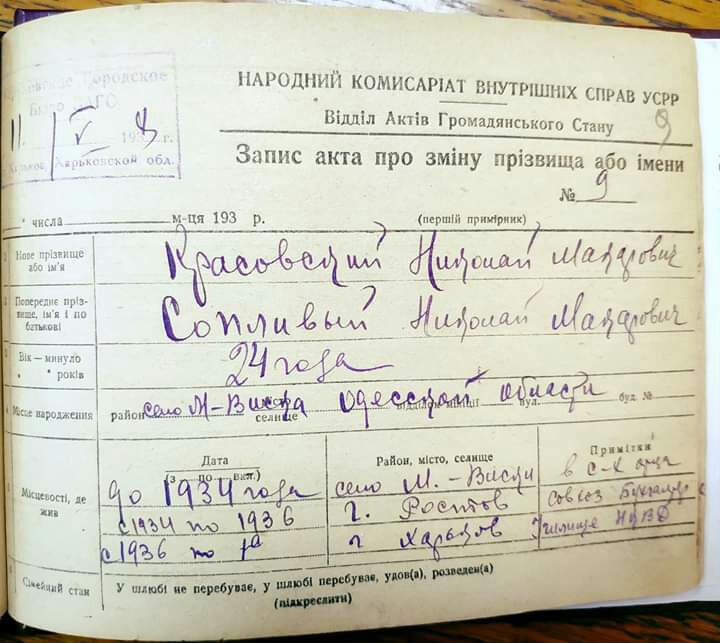 Городское
Бюро ЗАГС
11. V 1938 г.
Харьковской обл.
НАРОДНИЙ КОМИСАРІАТ ВНУТРІШНІХ СПРАВ УСРР
Відділ Актів Громадянського Стану
Запис акта про зміну прізвища або імени
№ 9
" числа м-ця 193 р. (перший примірник)
Нове прізвище або ім'я Красовский Николай
Попереднє прізвище, ім'я і по батькові Сопливый Николай
Вік — минуло років 24 года
Місце народження район село М-Виска Одесской области
селище відділок міліції вул. буд. №
Дата (з — по — вкл.) Район, місто, селище Примітки
Місцевості, де жив до 1934 года село М.-Виски в с-х отца
с 1934 по 1936 г. Ростов совхоз Бухгалтер
с 1936 по г Харьков Училище НКВД
Сімейний стан У шлюбі не перебуває, у шлюбі перебуває, удов(а), розведен(а)
(підкреслити)